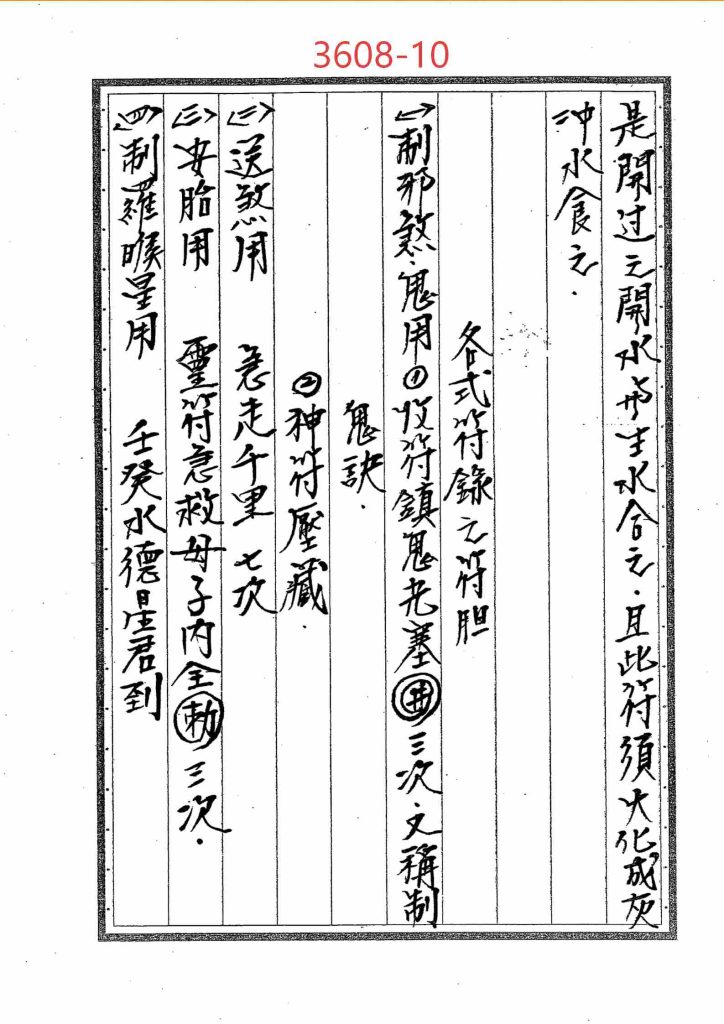 3608-10
是開过之開水与生水合之．且此符須火化成灰
冲水食之．
各式符錄之符胆
(一)制邪煞．鬼用①收符鎮鬼先塞(井)三次．又稱制
鬼訣．
②神符壓藏．
(二)送煞用　急走千里　七次
(三)安胎用　靈符急救母子內全(勅)三次．
(四)制羅睺星用　壬癸水德星君到